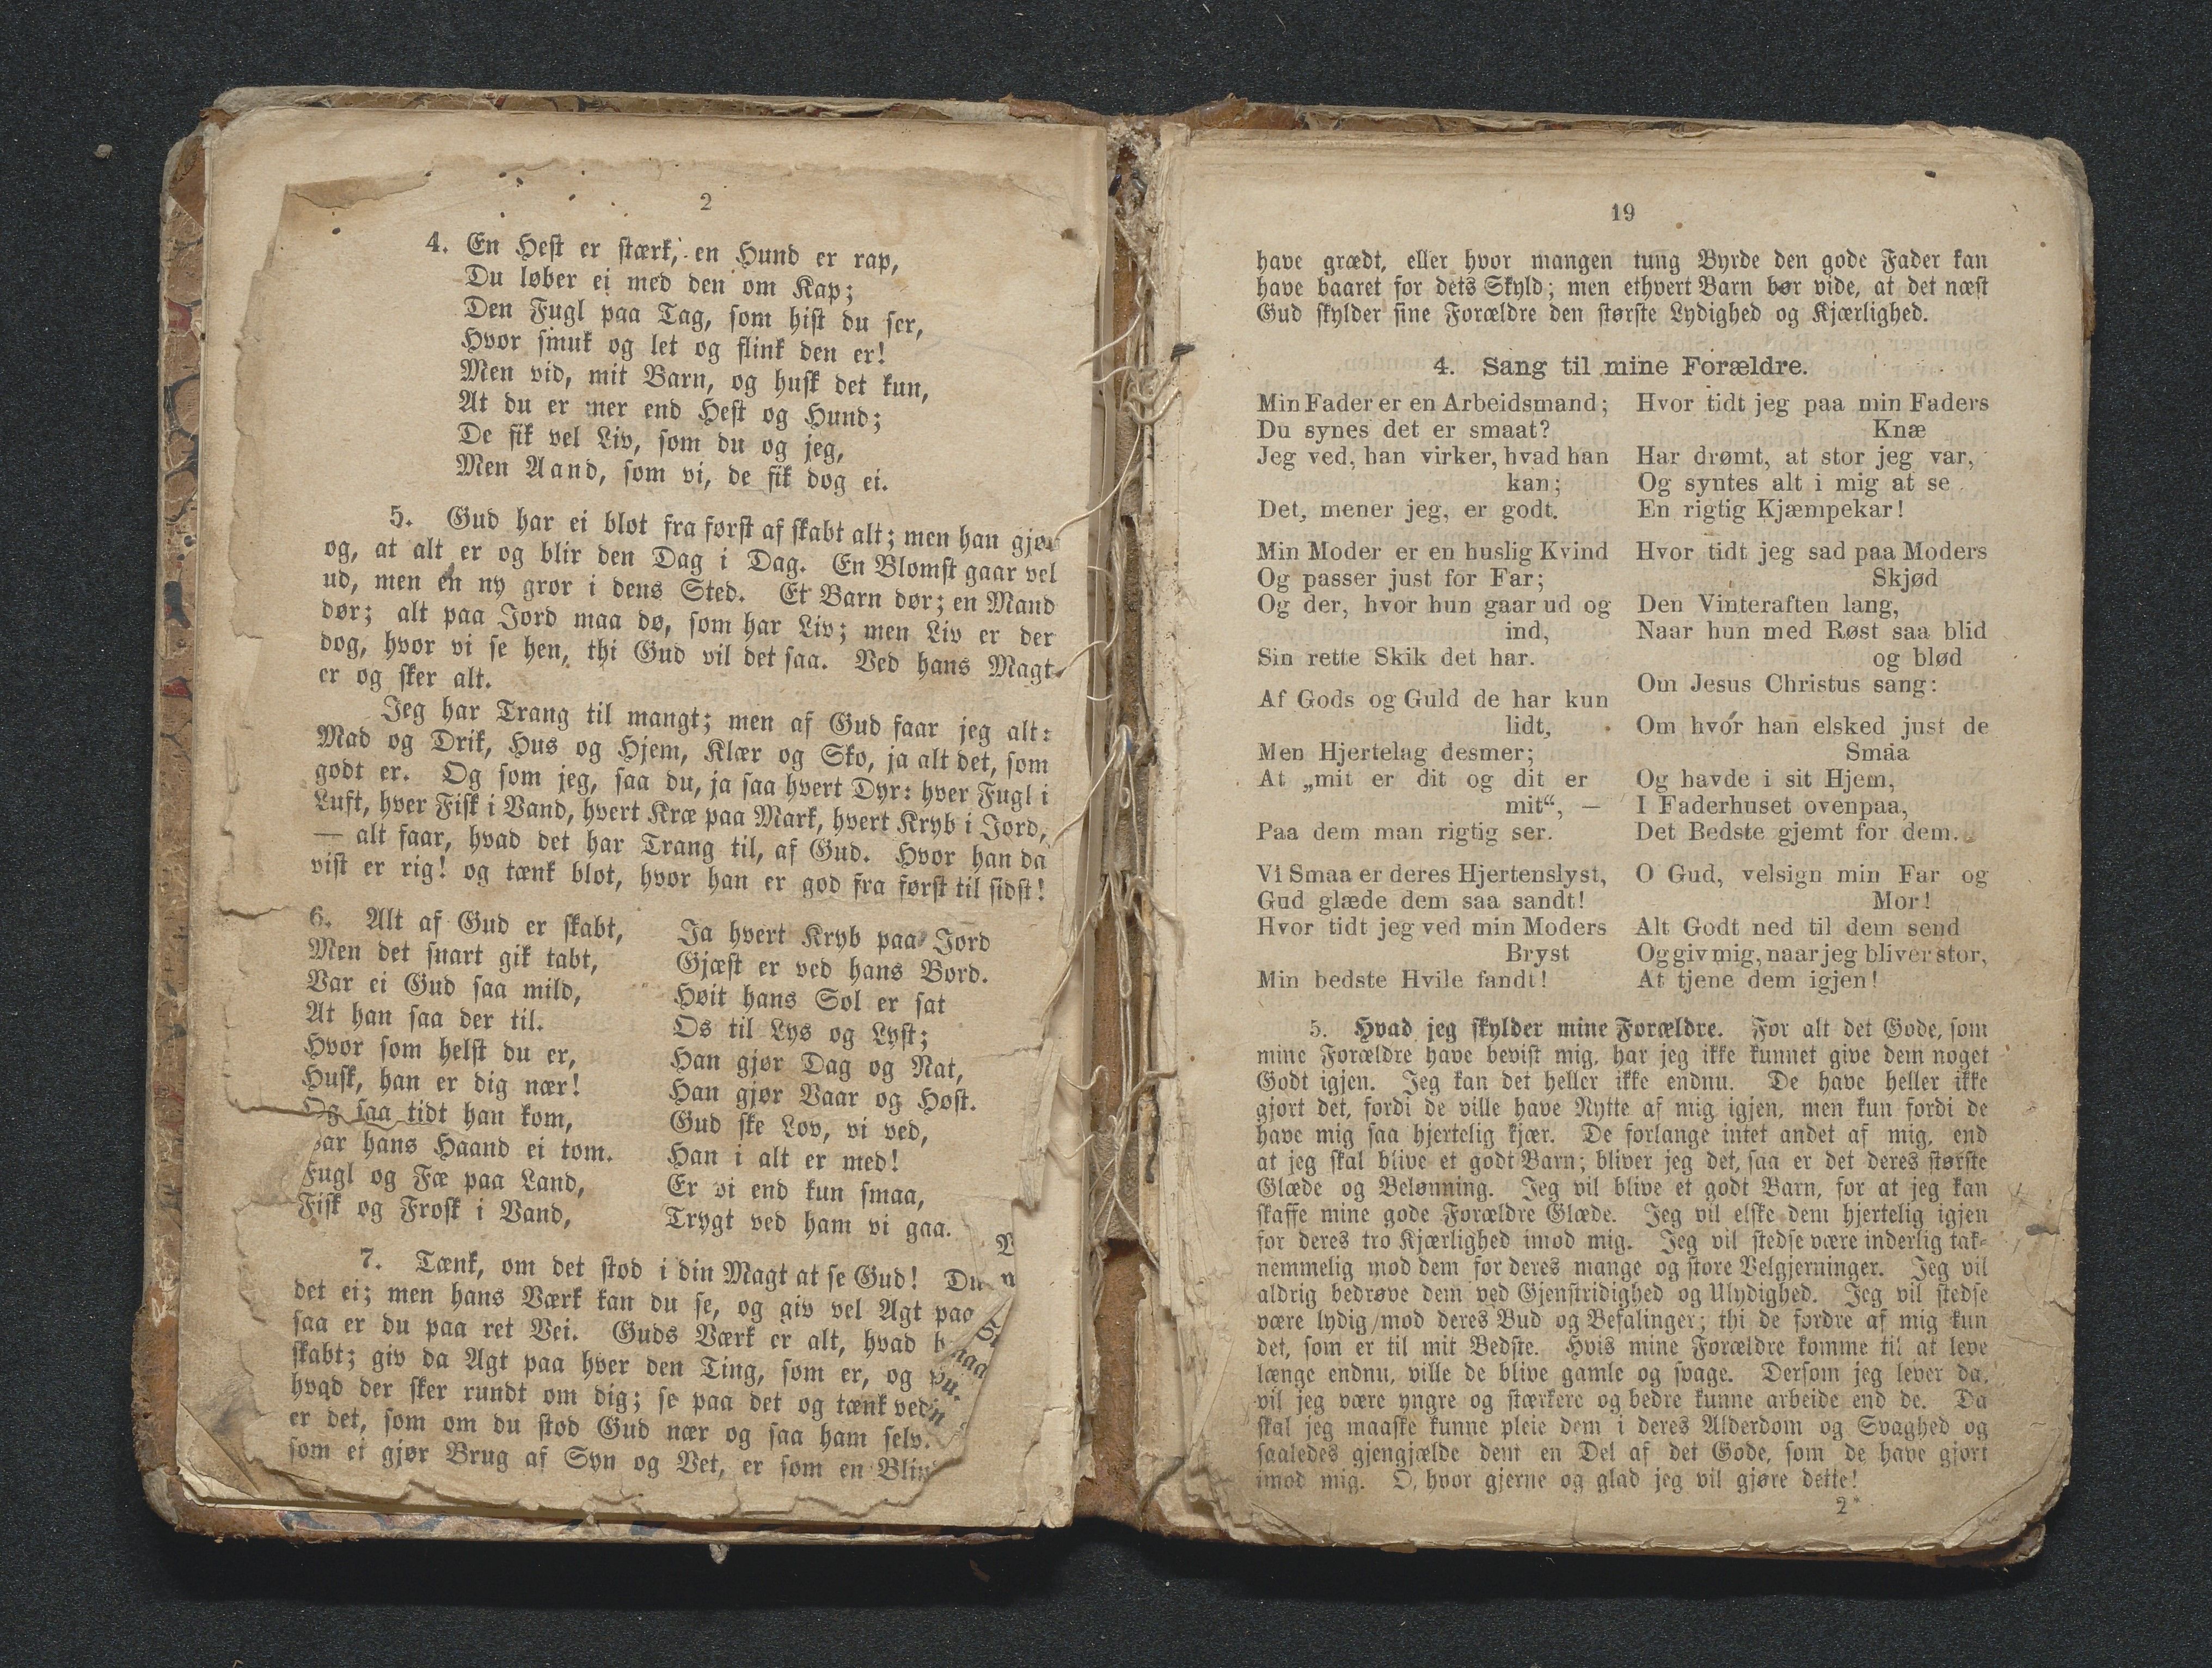 2
4. En Hest er stærk, en Hund er rap,
Du løber ei med den om Kap;
Den Fugl paa Tag, som hist du ser,
Hvor smuk og let og flink den er!
Men vid, mit Barn, og husk det kun,
At du er mer end Hest og Hund;
De fik vel Liv, som du og jeg,
Men Aand, som vi, de fik dog ei.
5. Gud har ei blot fra først af skabt alt; men han gjør
og, at alt er og blir den Dag i Dag. En Blomst gaar vel
ud, men en ny gror i dens Sted. Et Barn dør; en Mand
dør; alt paa Jord maa dø, som har Liv; men Liv er der
dog, hvor vi se hen, thi Gud vil det saa. Ved hans Magt
er og sker alt.
Jeg har Trang til mangt; men af Gud faar jeg alt:
Mad og Drik, Hus og Hjem, Klær og Sko, ja alt det, som
godt er. Og som jeg, saa du, ja saa hvert Dyr: hver Fugl i
Luft, hver Fisk i Vand, hvert Kræ paa Mark, hvert Kryb i Jord,
— alt faar, hvad det har Trang til, af Gud. Hvor han da
vist er rig! og tænk blot, hvor han er god fra først til sidst!
6. Alt af Gud er skabt,
Men det snart gik tabt,
Var ei Gud saa mild,
At han saa der til.
Hvor som helst du er,
Husk, han er dig nær!
Og saa tidt han kom,
ar hans Haand ei tom.
Fugl og Fæ paa Land,
Fisk og Frosk i Vand,
Ja hvert Kryb paa Jord
Gjæst er ved hans Bord.
Høit hans Sol er sat
Os til Lys og Lyst;
Han gjør Dag og Nat,
Han gjør Vaar og Høst.
Gud ske Lov, vi ved,
Han i alt er med!
Er vi end kun smaa,
Trygt ved ham vi gaa.
7. Tænk, om det stod i din Magt at se Gud! Du
det ei; men hans Værk kan du se, og giv vel Agt paa
saa er du paa ret Vei. Guds Værk er alt, hvad
skabt; giv da Agt paa hver den Ting, som er, og
hvad der sker rundt om dig; se paa det og tænk ved
er det, som om du stod Gud nær og saa ham selv.
som ei gjør Brug af Syn og Vet, er som en
19
have grædt, eller hvor mangen tung Byrde den gode Fader kan
have baaret for dets Skyld; men ethvert Barn bør vide, at det næst
Gud skylder sine Forældre den største Lydighed og Kjærlighed.
4. Sang til mine Forældre.
Min Fader er en Arbeidsmand;
Du synes det er smaat?
Jeg ved, han virker, hvad han
kan;
Det, mener jeg, er godt.
Min Moder er en huslig Kvind
Og passer just for Far;
Og der, hvor hun gaar ud og
ind,
Sin rette Skik det har.
Af Gods og Guld de har kun
lidt,
Men Hjertelag desmer;
At „mit er dit og dit er
mit“, —
Paa dem man rigtig ser.
Vi Smaa er deres Hjertenslyst,
Gud glæde dem saa sandt!
Hvor tidt jeg ved min Moders
Bryst
Min bedste Hvile fandt!
Hvor tidt jeg paa min Faders
Knæ
Har drømt, at stor jeg var,
Og syntes alt i mig at se
En rigtig Kjæmpekar!
Hvor tidt jeg sad paa Moders
Skjød
Den Vinteraften lang,
Naar hun med Røst saa blid
og blød
Om Jesus Christus sang:
Om hvor han elsked just de
Smaa
Og havde i sit Hjem,
I Faderhuset ovenpaa,
Det Bedste gjemt for dem.
O Gud, velsign min Far og
Mor!
Alt Godt ned til dem send
Og giv mig, naar jeg bliver stor,
At tjene dem igjen!
5. Hvad jeg skylder mine Forældre. For alt det Gode, som
mine Forældre have bevist mig, har jeg ikke kunnet give dem noget
Godt igjen. Jeg kan det heller ikke endnu. De have heller ikke
gjort det, fordi de ville have Nytte af mig igjen, men kun fordi de
have mig saa hjertelig kjær. De forlange intet andet af mig, end
at jeg skal blive et godt Barn; bliver jeg det, saa er det deres største
Glæde og Belønning. Jeg vil blive et godt Barn, for at jeg kan
skaffe mine gode Forældre Glæde. Jeg vil elske dem hjertelig igjen
for deres tro Kjærlighed imod mig. Jeg vil stedse være inderlig tak-
nemmelig mod dem for deres mange og store Velgjerninger. Jeg vil
aldrig bedrøve dem ved Gjenstridighed og Ulydighed. Jeg vil stedse
være lydig mod deres Bud og Befalinger; thi de fordre af mig kun
det, som er til mit Bedste. Hvis mine Forældre komme til at leve
længe endnu, ville de blive gamle og svage. Dersom jeg lever da,
vil jeg være yngre og stærkere og bedre kunne arbeide end de. Da
skal jeg maaske kunne pleie dem i deres Alderdom og Svaghed og
saaledes gjengjælde dem en Del af det Gode, som de have gjort
imod mig. O, hvor gjerne og glad jeg vil gjøre dette!
2*